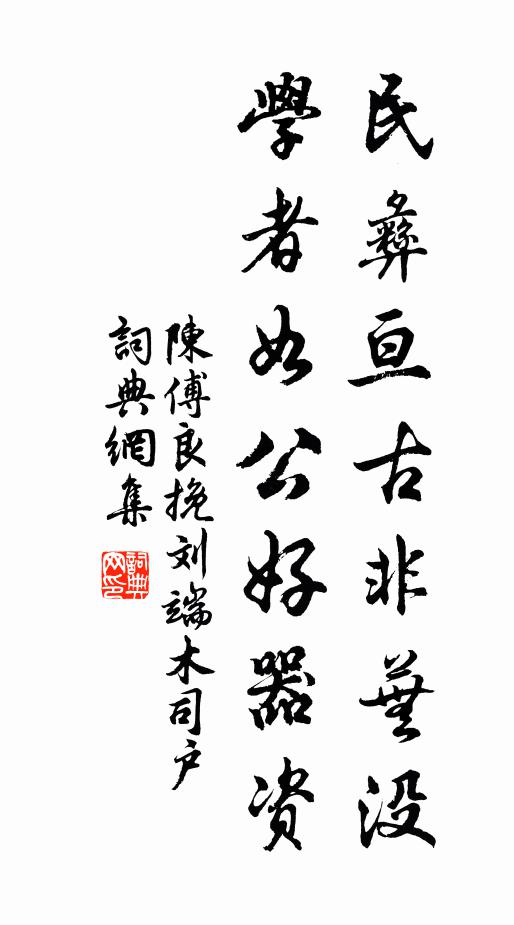 民彝亘古非芜没
學者如公好器资
陳傅良挽刘端木司户
詞典網集
詞典网印